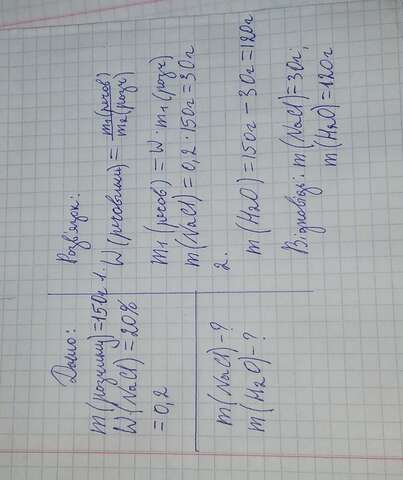 Дано:
m(розчину)=150г
W(NaCl)=20%
=0,2
m(NaCl)-?
m(H2O)-?
Розв'язок:
1. W(речовини)=m1(речов)/m2(розч)
m1(речов)=W·m1(розч)
m(NaCl)=0,2·150г=30г
2.
m(H2O)=150г-30г=120г
Відповідь: m(NaCl)=30г;
m(H2O)=120г